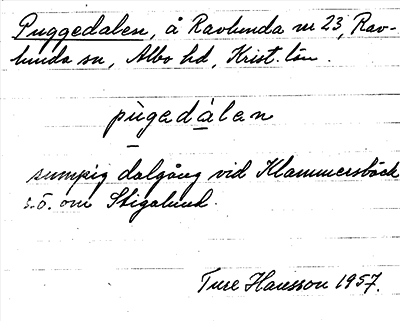 Puggedalen, å Ravlunda nr 23, Rav-
lunda sn, Albo hd, Krist. län.
pùgedàlen
sumpig dalgång vid Klammersbäck
s.ö. om Stigslund.
Ture Hansson 1957.